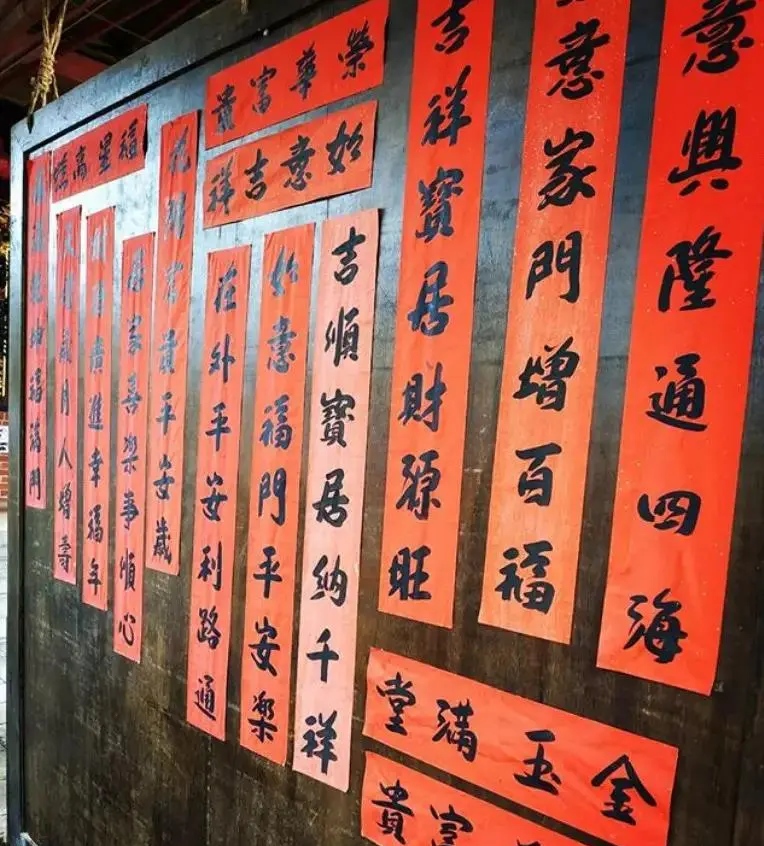 意興隆通四海
意家門增百福
吉祥寶居財源旺
榮華富貴
如意吉祥
吉順寶居納千祥
如意福門平安樂
在外平安利路通
花開富貴平安歲
居家喜樂事順心
廣進幸福年
福星高照
天增歲月人增壽
滿乾坤福滿門
金玉滿堂
富貴